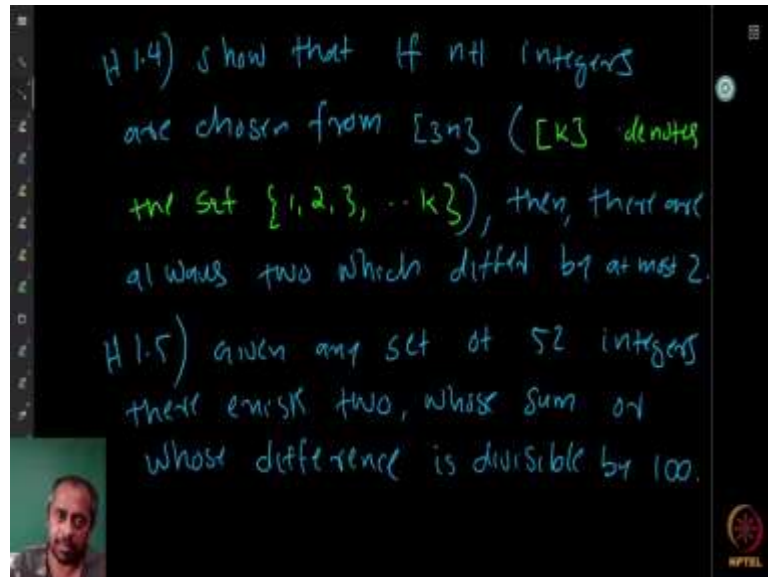 H 1.4) show that if n+1 integers
are chosen from [3n] ([k] denotes
the set {1, 2, 3, .. k}), then, there are
always two which differ by at most 2.
H 1.5) Given any set of 52 integers
there exist two, whose sum or
whose difference is divisible by 100.
NPTEL